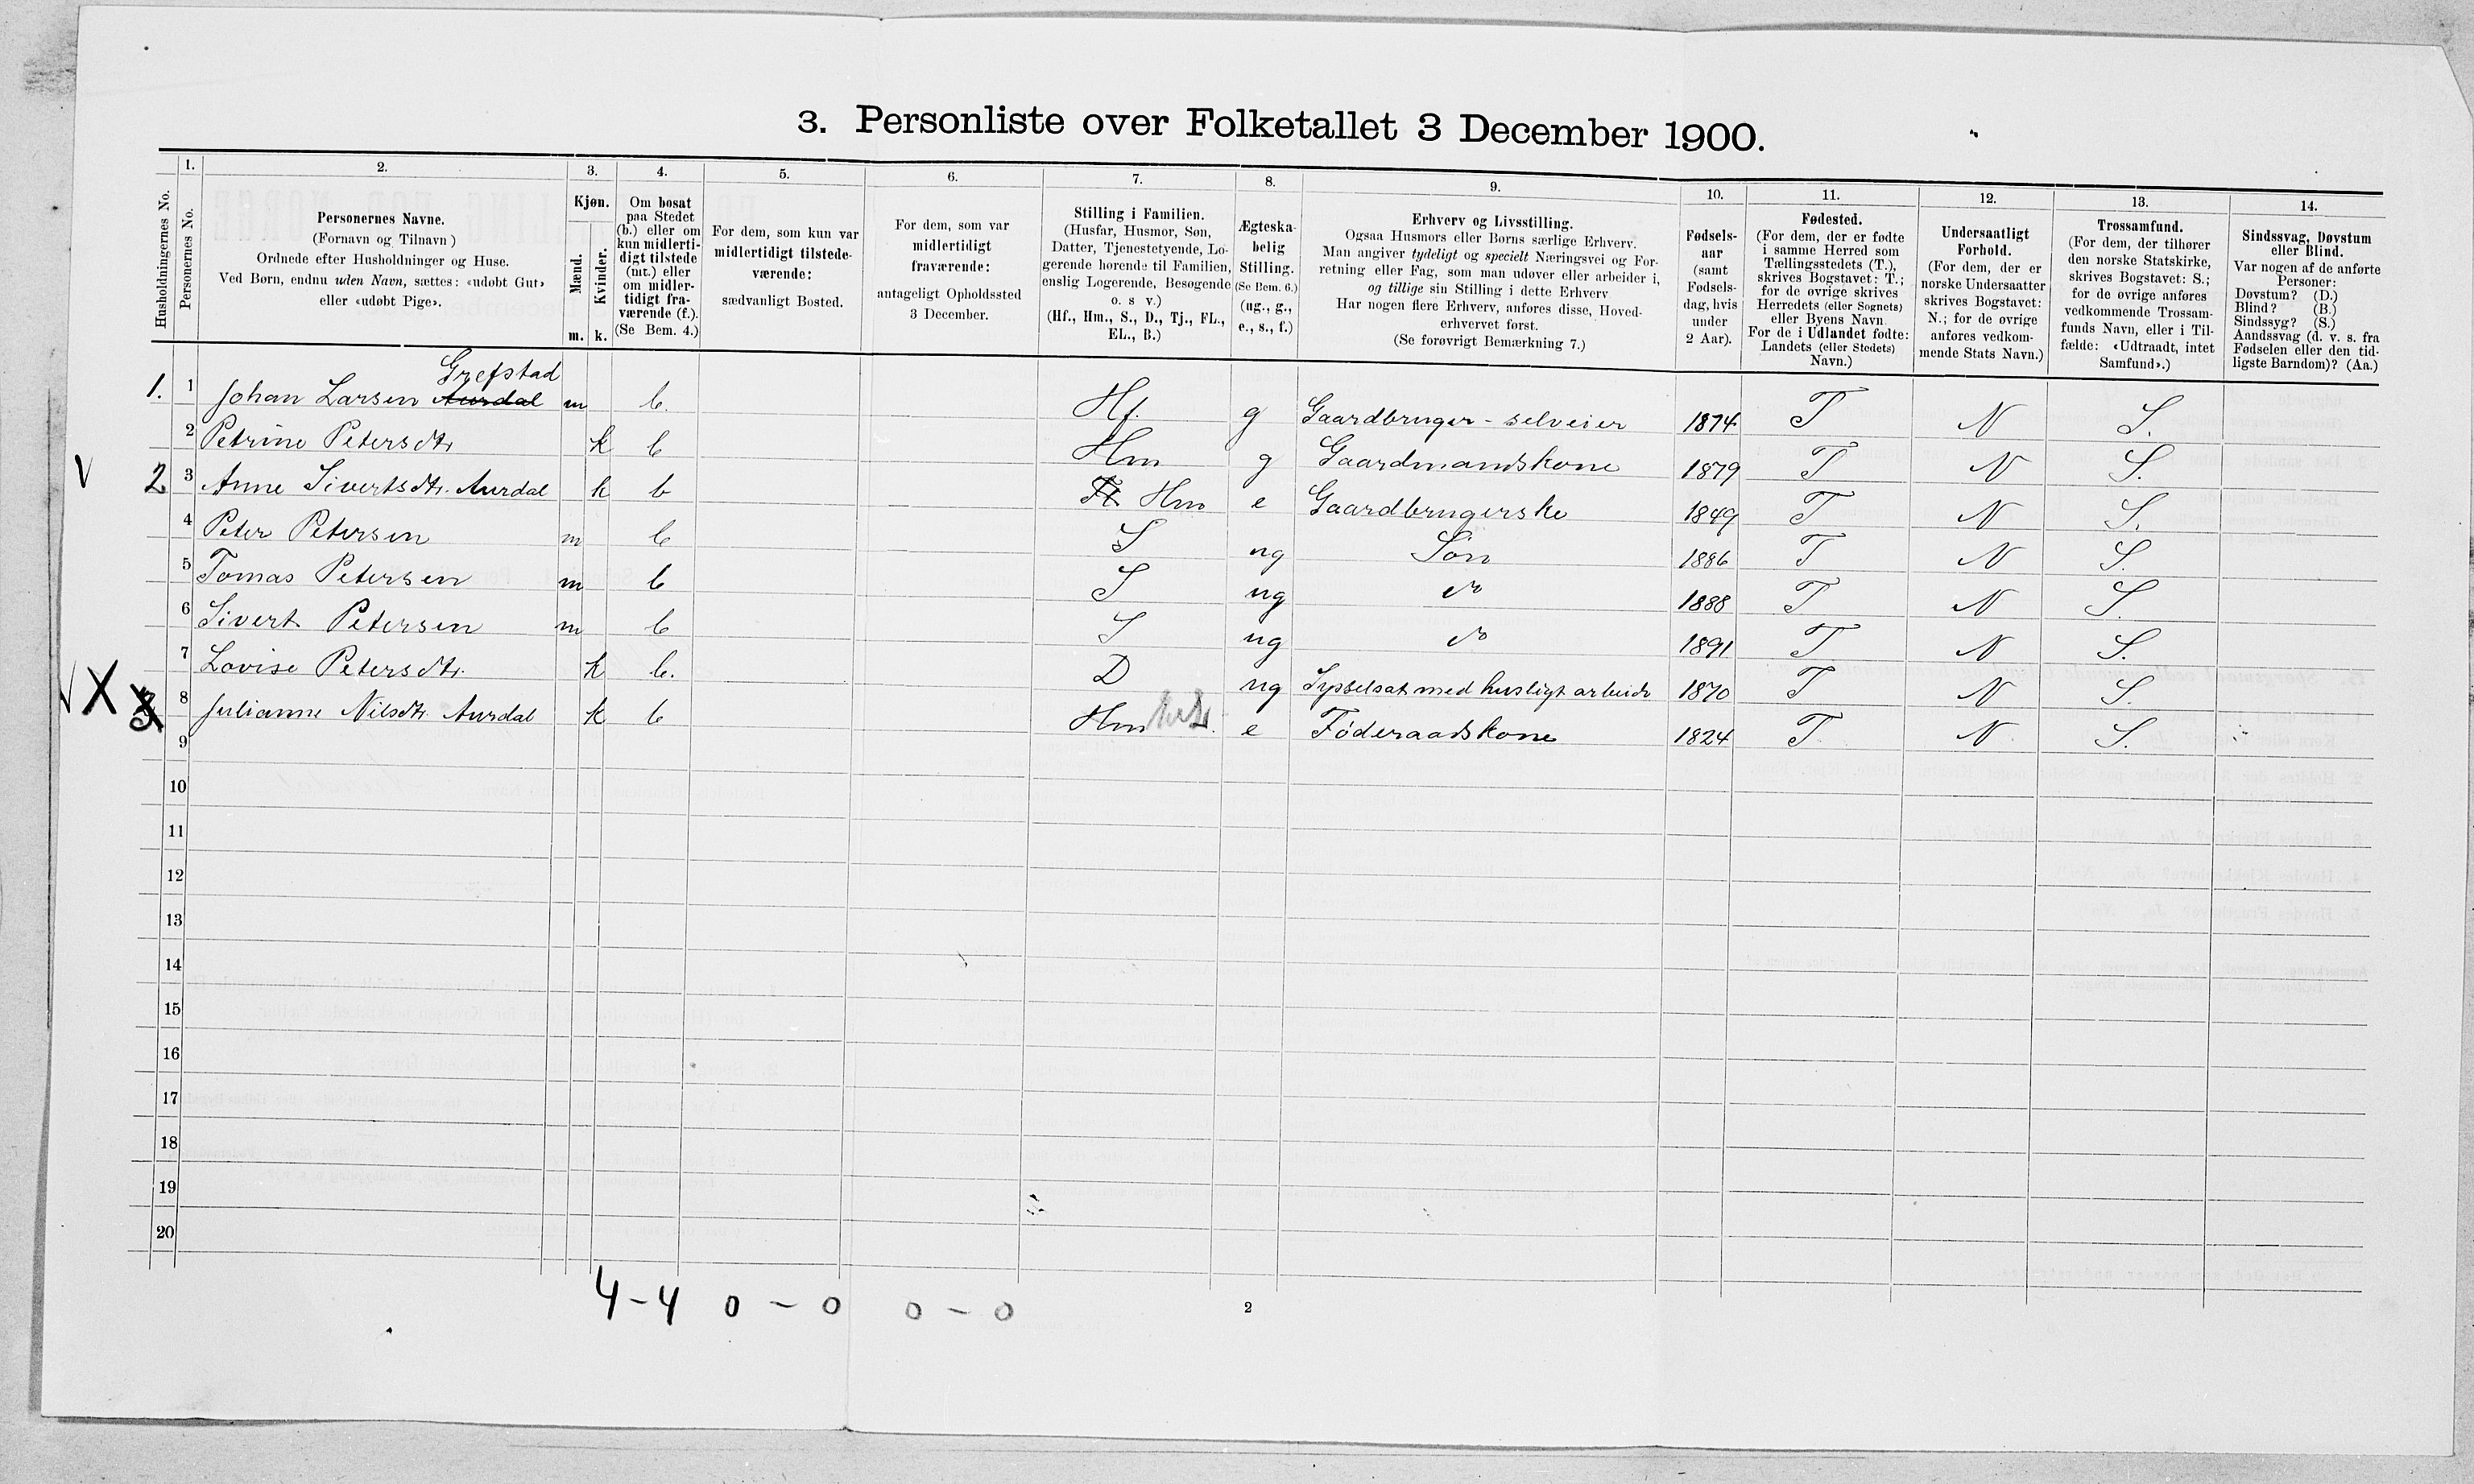 3. Personliste over Folketallet 3 December 1900.
Husholdningernes No.
1.
Personernes No.
2.
Personernes Navne.
(Fornavn og Tilnavn)
Ordnede efter Husholdninger og Huse.
Ved Børn, endnu uden Navn, sættes: «udøbt Gut»
eller «udøbt Pige».
3.
Kjøn.
Mænd.
Kvinder.
m. k.
4.
Om bosat
paa Stedet
(b.) eller om
kun midlerti-
digt tilstede
(mt.) eller
om midler-
tidigt fra-
værende (f.).
(Se Bem. 4.)
5.
For dem, som kun var
midlertidigt tilstede-
værende:
sædvanligt Bosted.
6.
For dem, som var
midlertidigt
fraværende:
antageligt Opholdssted
3 December.
7.
Stilling i Familien.
(Husfar, Husmor, Søn,
Datter, Tjenestetyende, Lo-
gerende hørende til Familien,
enslig Logerende, Besøgende
o. s v.)
(Hf., Hm., S., D., Tj., FL.,
EL., B.)
8.
Ægteska-
belig
Stilling.
(Se Bem. 6.)
(ug., g.,
e., s., f.)
9.
Erhverv og Livsstilling.
Ogsaa Husmors eller Børns særlige Erhverv.
Man angiver tydeligt og specielt Næringsvei og For-
retning eller Fag, som man udøver eller arbeider i,
og tillige sin Stilling i dette Erhverv
Har nogen flere Erhverv, anføres disse, Hoved-
erhvervet først.
(Se forøvrigt Bemærkning 7.)
10.
Fødsels-
aar
(samt
Fødsels-
dag, hvis
under
2 Aar).
11.
Fødested.
(For dem, der er fødte
i samme Herred som
Tællingsstedets (T.),
skrives Bogstavet: T.;
for de øvrige skrives
Herredets (eller Sognets)
eller Byens Navn
For de i Udlandet fødte:
Landets (eller Stedets)
Navn.)
12.
Undersaatligt
Forhold.
(For dem, der er
norske Undersaatter
skrives Bogstavet:
N.; for de øvrige
anføres vedkom-
mende Stats Navn.)
13.
Trossamfund.
(For dem, der tilhører
den norske Statskirke,
skrives Bogstavet: S.;
for de øvrige anføres
vedkommende Trossam-
funds Navn, eller i Til-
fælde: «Udtraadt, intet
Samfund».)
14.
Sindssvag, Døvstum
eller Blind.
Var nogen af de anførte
Personer:
Døvstum? (D.)
Blind? (B.)
Sindssyg? (S.)
Aandssvag (d. v. s. fra
Fødselen eller den tid-
ligste Barndom)? (Aa.)
Grefstad
1. 1 Johan Larsen Aurdal m b. Hf. g Gaardbruger - selveier 1874 T N S.
2 Petrine Petersdtr k b Hm g Gaardmandskone 1879 T N S.
V 2 3 Anne Sivertsdtr. Aurdal k b Hm e Gaardbrugerske 1849 T N S.
4 Peter Petersen m b S ug Søn 1886 T N S.
5 Tomas Petersen m b S ug do 1888 T N S.
6 Sivert Petersen m b S ug do 1891 T N S.
7 Lovise Petersdtr. k b. D ug Sysselsat med husligt arbeide 1870 T N S.
V X 3 8 Julianne Nilsdtr. Aurdal k b Hm e Føderaadskone 1824 T N S.
9
10
11
12
13
14
15
16
17
18
19
20
4-4 0-0 0-0
2